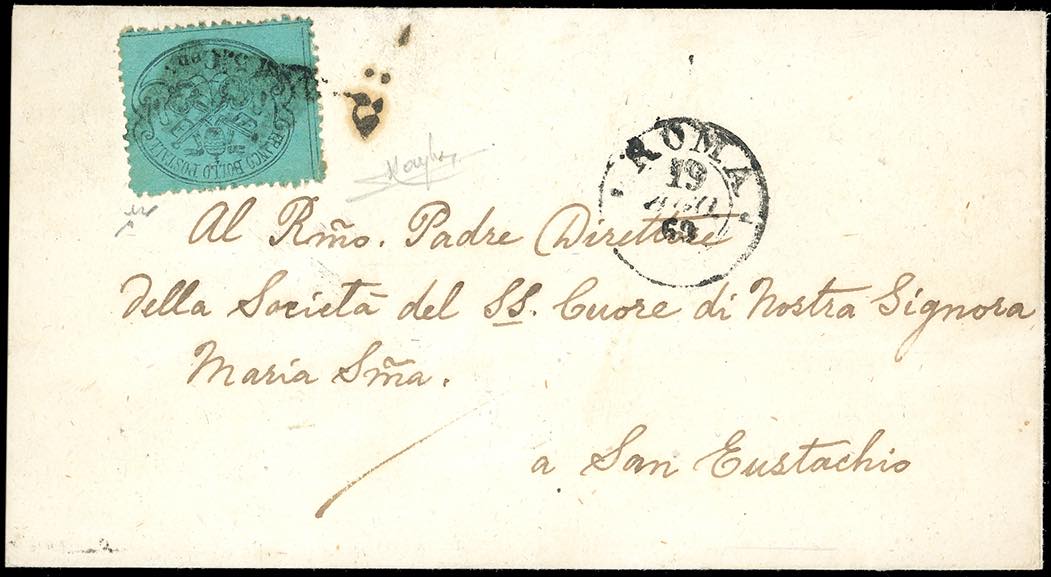 FRANCO BOLLO POSTALE
ROMA
19
AGO
69
Al Rm̃o. Padre Direttore
della Società del SS. Cuore di Nostra Signora
Maria Sm̃a.
a San Eustachio